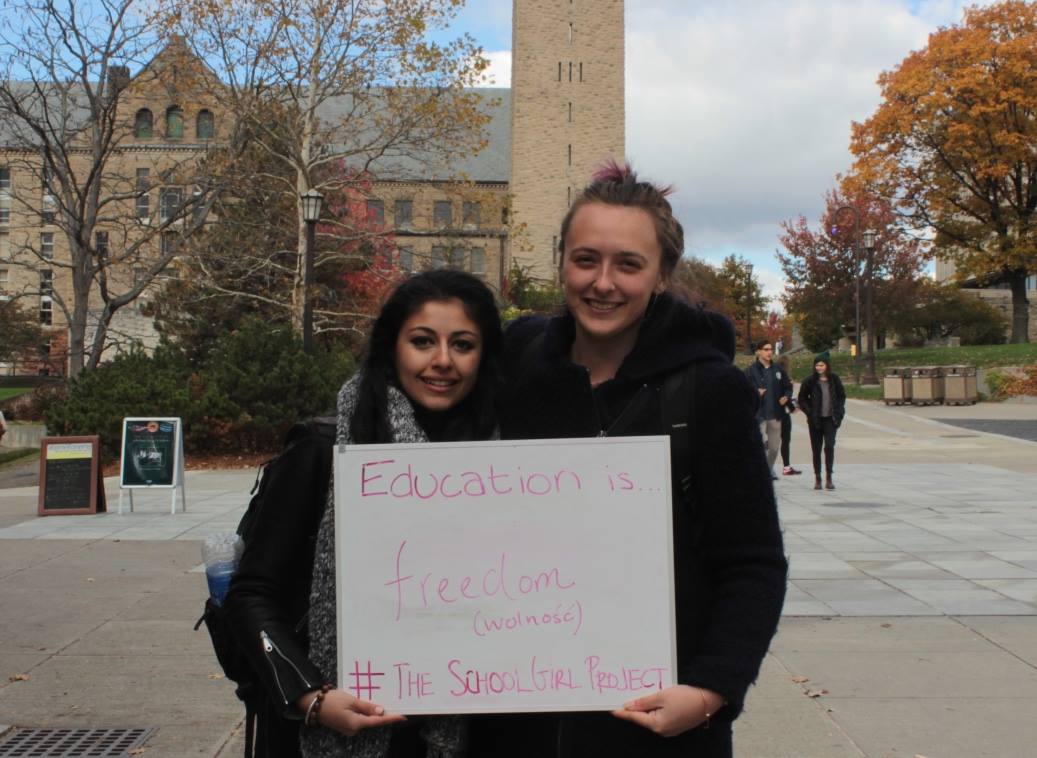 Education is...
freedom
(wolność)
# THE SCHOOLGIRL PROJECT